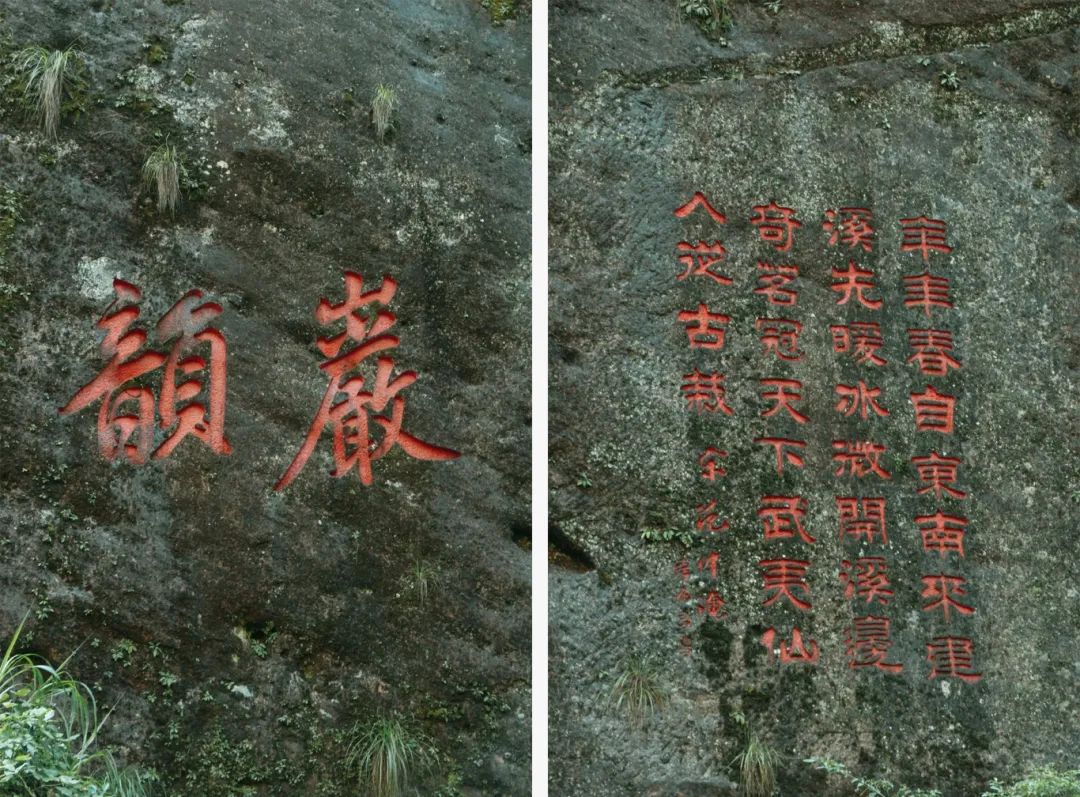 巖韻
年年春自東南來建
溪先暖冰微開溪邊
奇茗冠天下武夷仙
人從古栽 宋范仲淹